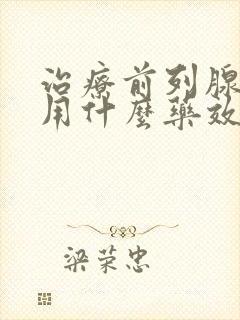 治療前列腺
用什麼藥效
梁荣忠